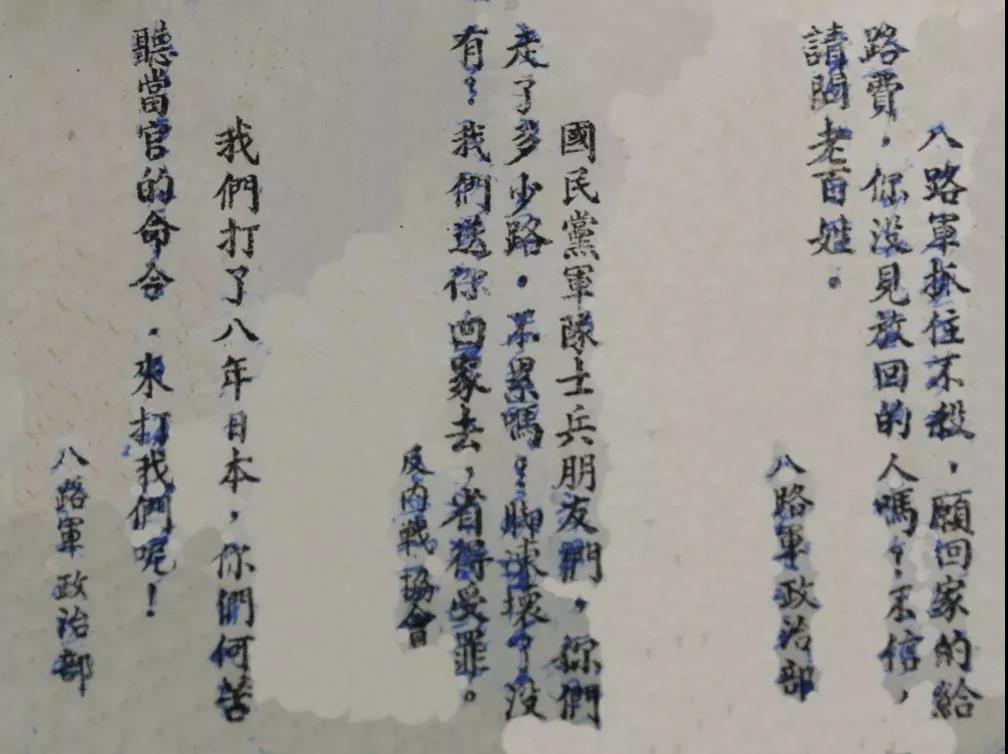 八路軍抓住不殺，願回家的給
路費，你没見放回的人嗎？不信，
請問老百姓。
八路軍政治部
國民黨軍隊士兵朋友們，你們
走了多少路。不累嗎？脚凍壞了没
有？我們送你回家去，省得受罪。
反内戰協會
我們打了八年日本，你們何苦
聽當官的命令．來打我們呢！
八路軍政治部